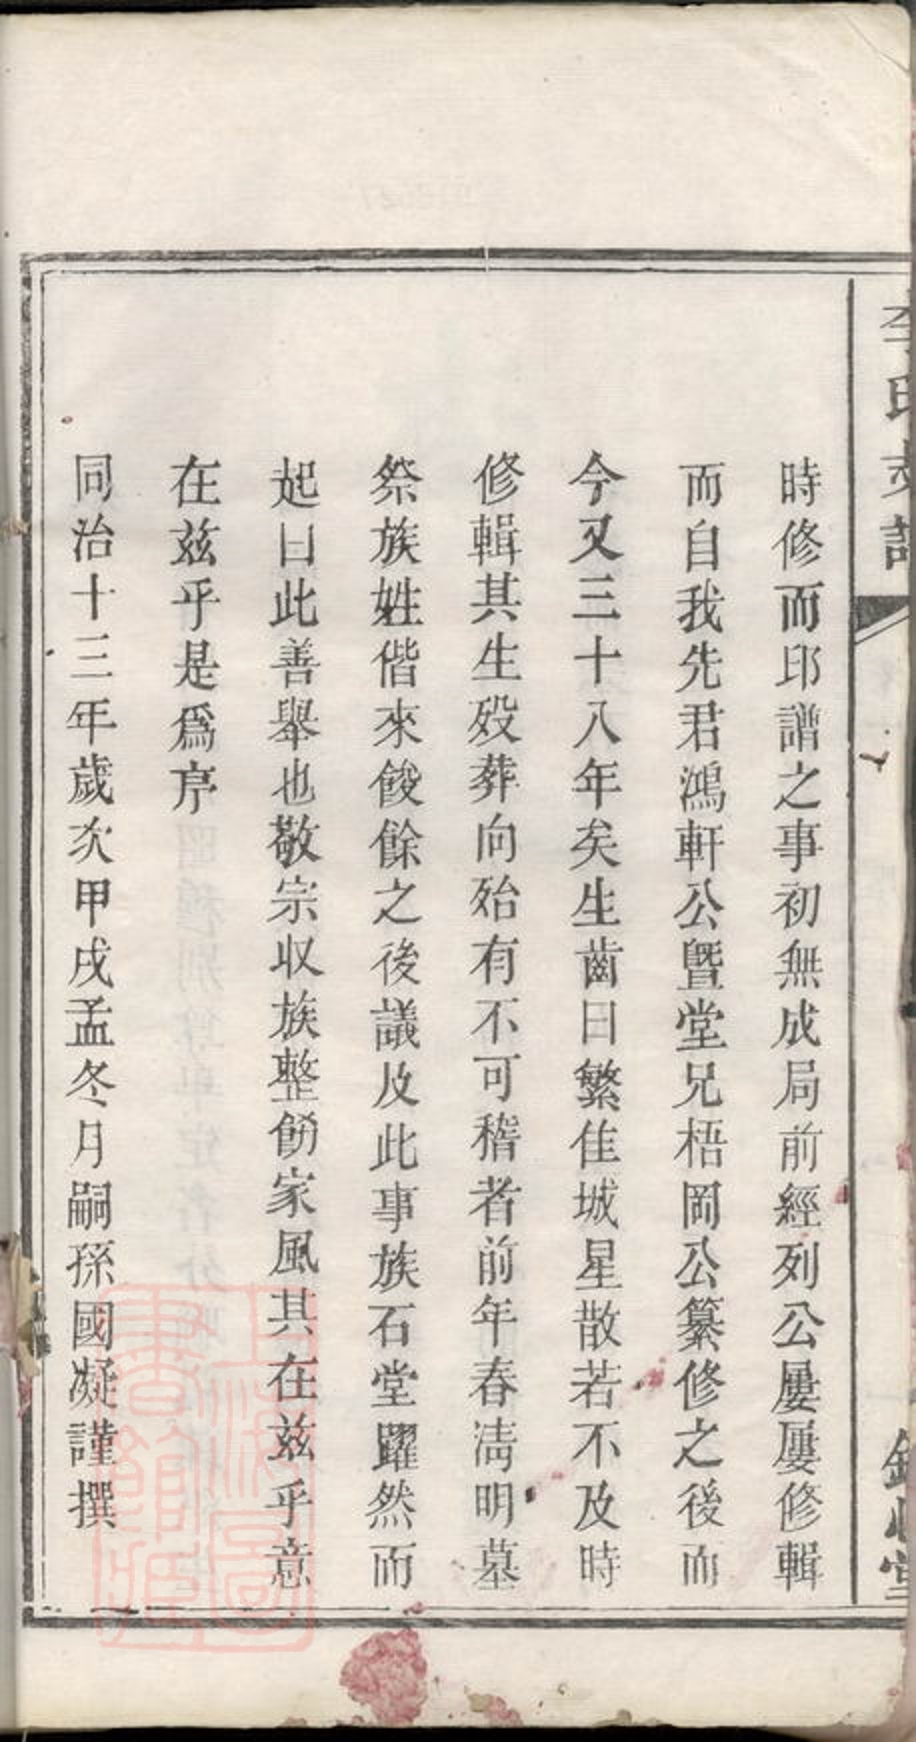 李氏支譜
時修而邱譜之事初無成局前經列公屢屢修輯
而自我先君鴻軒公暨堂兄梧岡公纂修之後而
今又三十八年矣生齒日繁佳城星散若不及時
修輯其生殁葬向殆有不可稽者前年春清明墓
祭族姓偕來餕餘之後議及此事族石堂躍然而
起曰此善舉也敬宗収族整飭家風其在茲乎意
在茲乎是爲序
同治十三年歲次甲戌孟冬月嗣孫國凝謹撰
上海圖書館藏